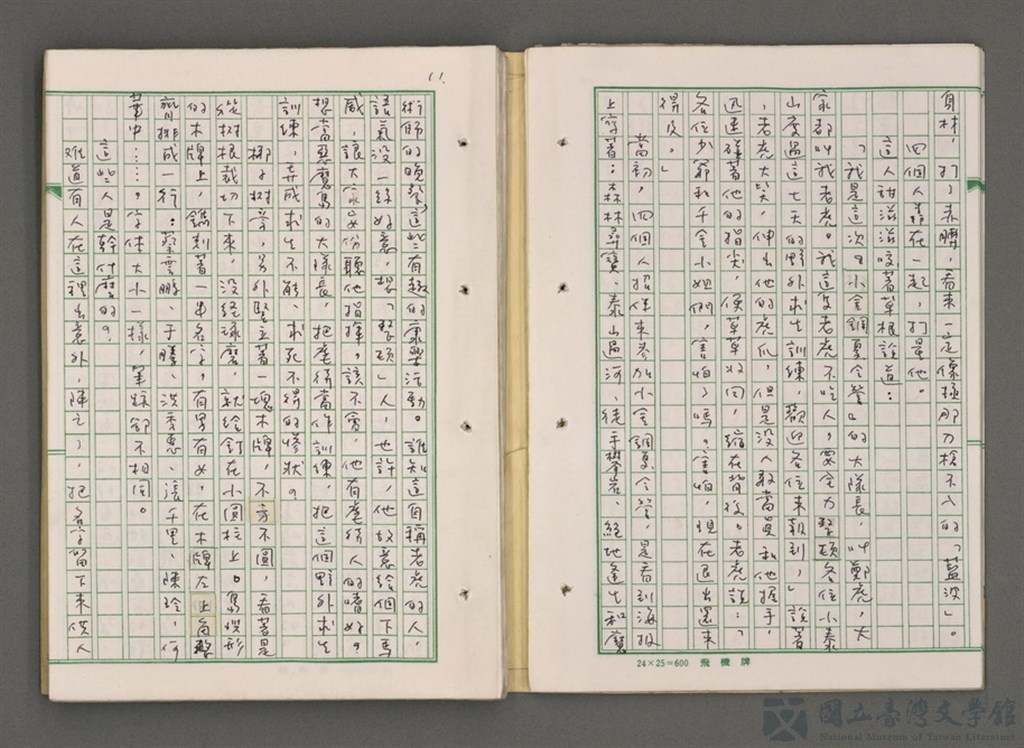 身材,打了赤膊,看來一定像極那刀槍不入的「藍波」。
四個人靠在一起,打量他。
這人甜滋滋咬著草根說道:
「我是這次『小金鋼夏令營』的大隊長,叫鄭虎,大
家都叫我老虎。我這隻老虎不吃人,要全力整頓各位小泰
山度過這七天的野外求生訓練,歡迎各位來報到,」說著
,老虎大笑,伸出他的虎爪,但是沒人敢當真和他握手,
迅速碰著他的指尖,便草草收回,縮在背後。老虎說:「
各位少爺和千金小姐們,害怕了嗎。害怕,現在退出還來
得及。」
當初,四個人招伴來參加小金鋼夏令營,是看到海報
上寫著:森林尋寶、泰山過河、徒手攀岩、絕地逢生和魔
11.
術師的晚餐這些有趣的康樂活動。誰知這自稱老虎的人,
語氣沒一絲好意,想「整頓」人,也許,他故意給個下馬
威,讓大家安份聽他指揮,該不會,他有虐待人的嗜好?
想當惡魔島的大隊長,把虐待當作訓練,把這個野外求生
訓練,弄成求生不能、求死不得的慘狀。
椰子樹旁,另外豎立著一塊木牌,不方不圓,看著是
從樹根裁切下來,沒經琢磨,就給釘在小圓柱上。島嶼形
的木牌上,鐫刻著一串名字,有男有女,在木牌左上角整
齊排成一行:蔡雲鵬、于騰、洪秀惠、張千里、陳玲、何
華中……,字体大小一樣,筆跡卻不相同。
這些人是幹什麼的?
難道有人在這裡出意外,陣亡了,把名字留下來供人
24×25=600 飛機牌
國立臺灣文學館
National Museum of Taiwan Literature